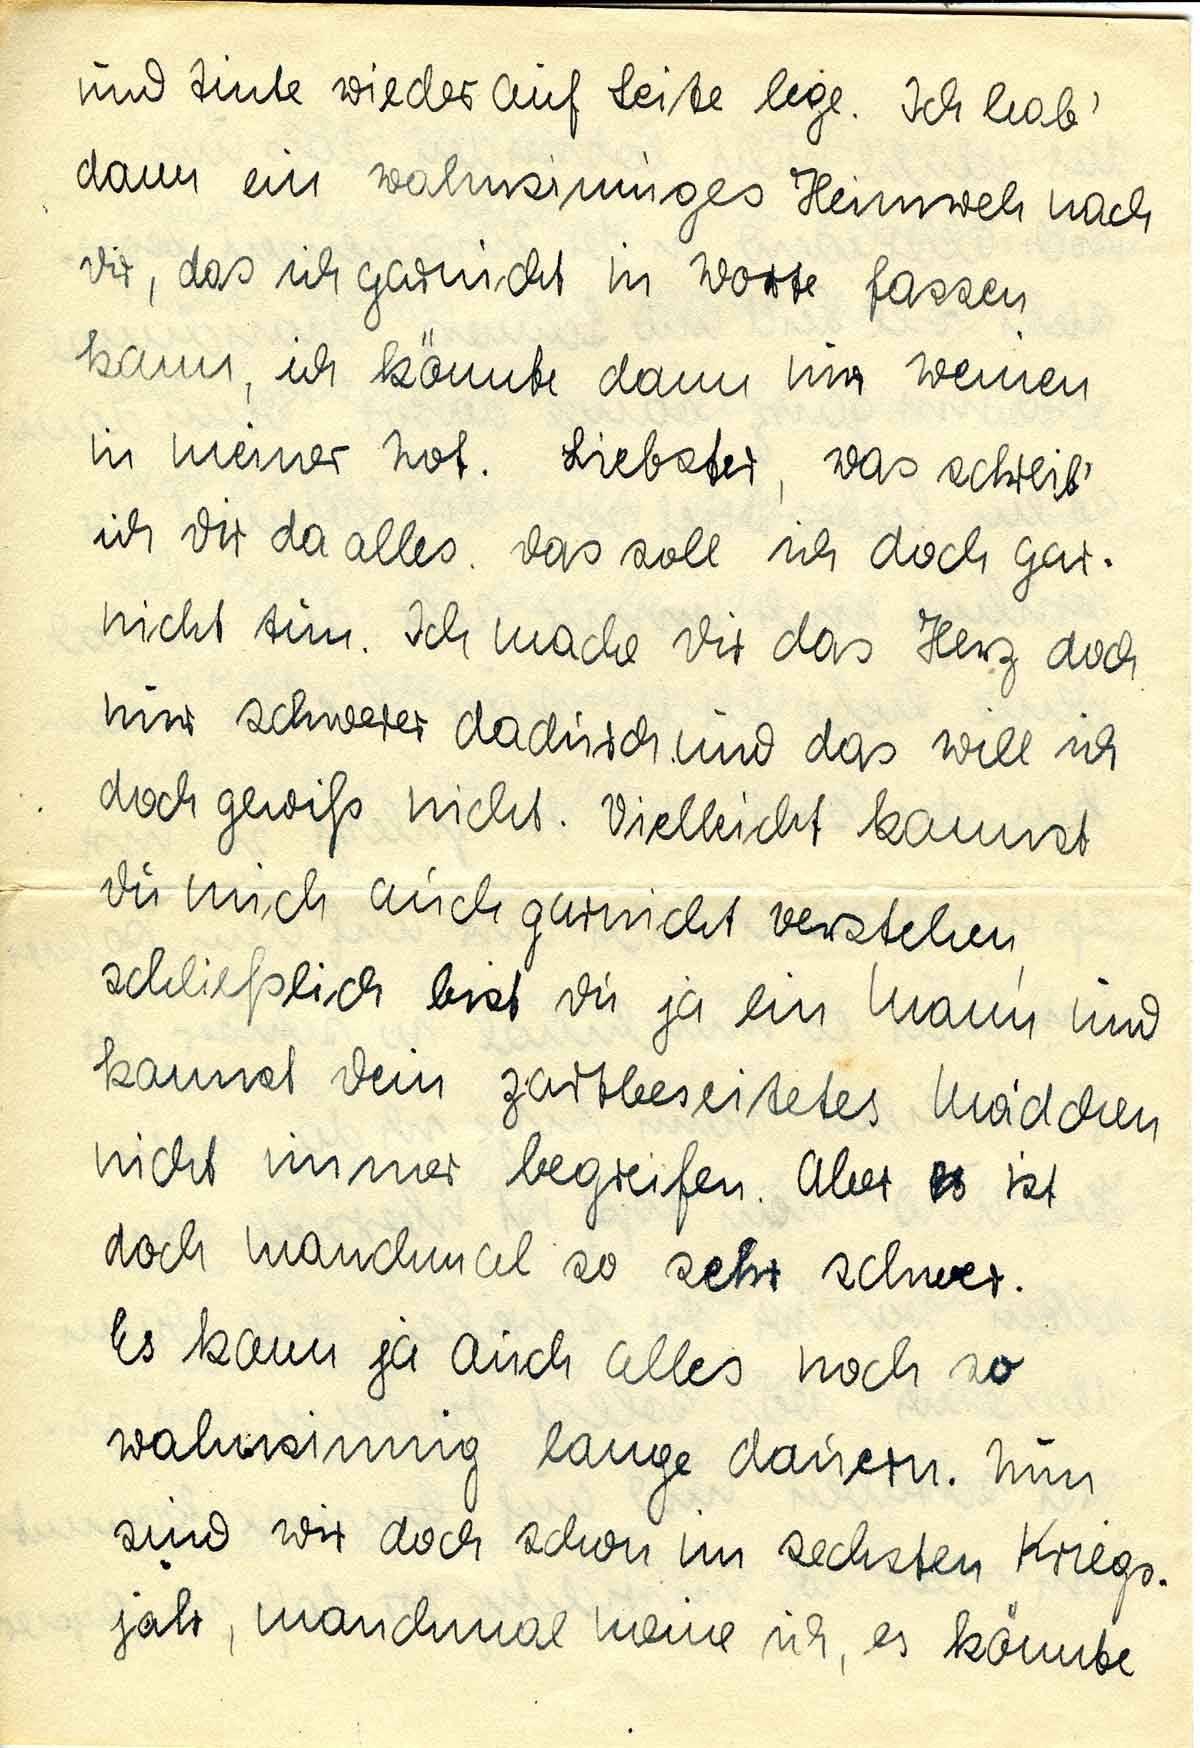 und Tinte wieder auf Seite lege. Ich hab'
dann ein wahnsinniges Heimweh nach
Dir, das ich garnicht in Worte fassen
kann, ich könnte dann nur weinen
in meiner Not. Liebster, was schreib'
ich Dir da alles. Das soll ich doch gar-
nicht tun. Ich mache Dir das Herz doch
nur schwerer dadurch und das will ich
doch gewiß nicht. Vielleicht kannst
Du mich auch garnicht verstehen,
schließlich bist Du ja ein Mann und
kannst Dein zartbeseitetes Mädchen
nicht immer begreifen. Aber es ist
doch manchmal so sehr schwer.
Es kann ja auch alles noch so
wahnsinnig lange dauern. Nun
sind wir doch schon im sechsten Kriegs-
jahr, manchmal meine ich, es könnte